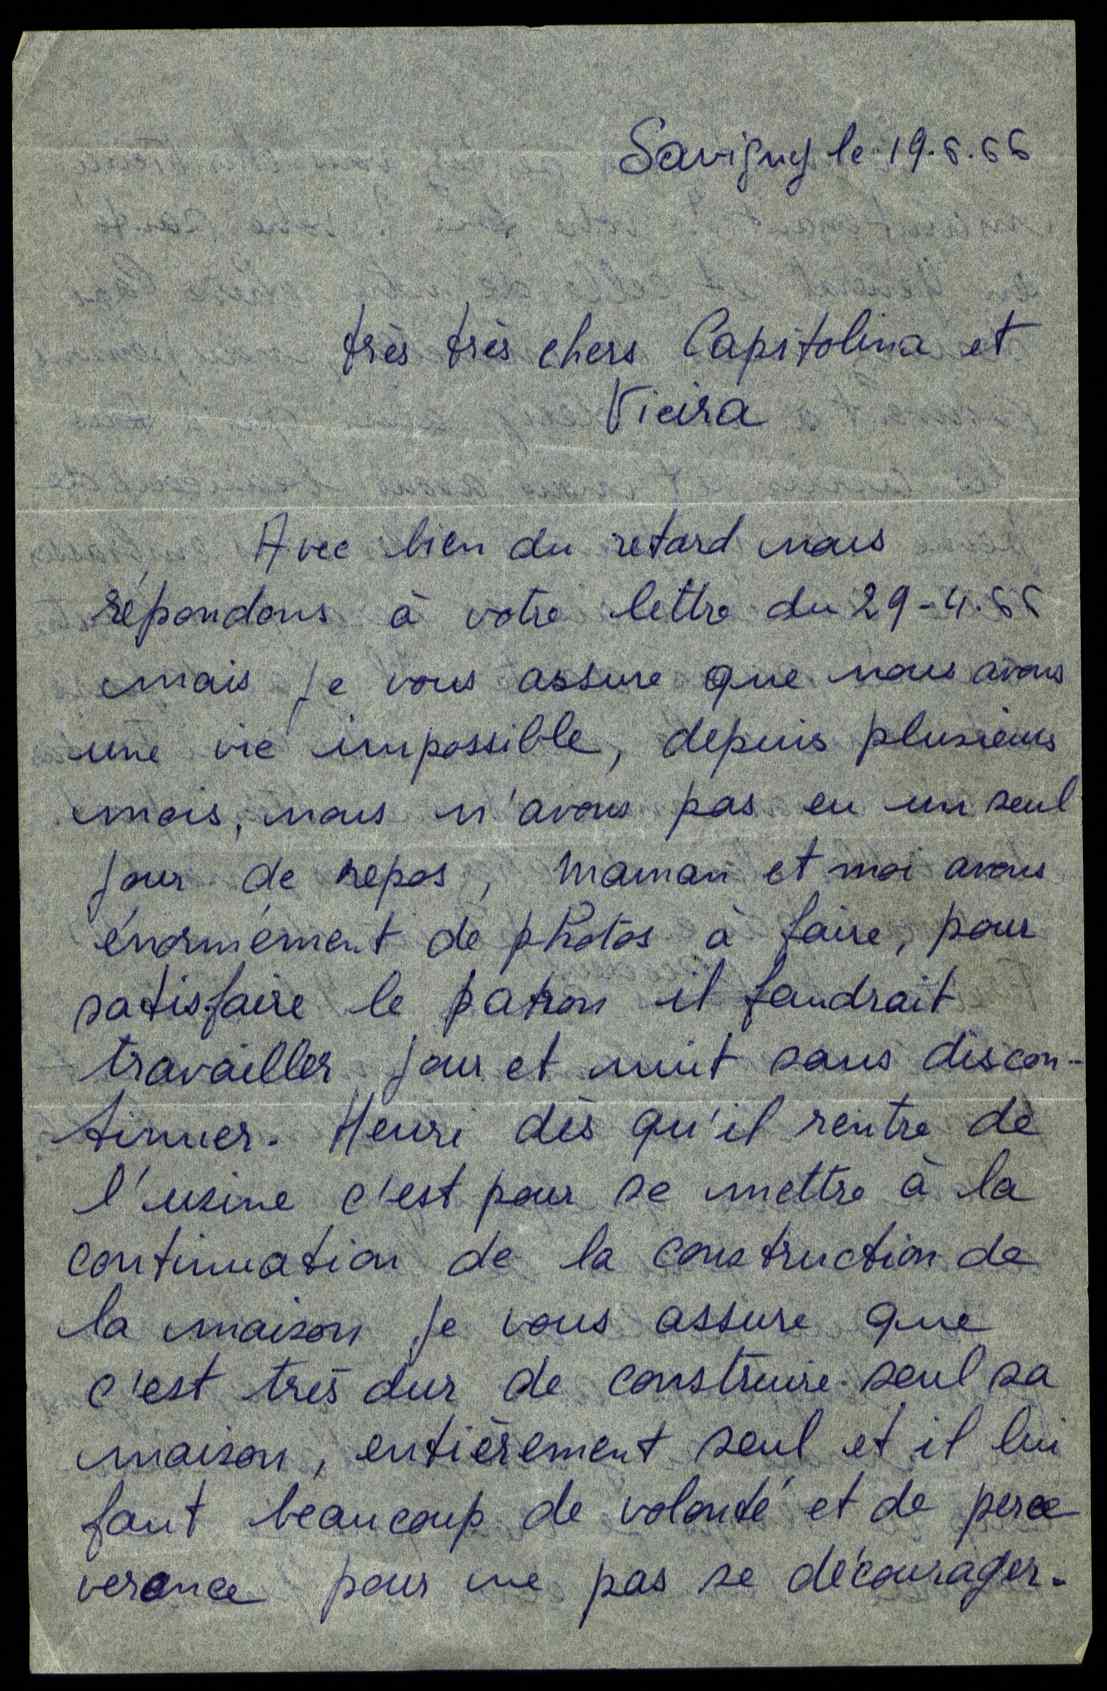 Savigny le 19.6.66
très très chers Capitolina et
Vieira
Avec bien du retard nous
répondons à votre lettre du 29-4.66
mais je vous assure que nous avons
une vie impossible, depuis plusieurs
mois, nous n'avons pas eu un seul
jour de repos, Maman et moi avons
énormément de photos à faire, pour
satisfaire le patron il faudrait
travailler jour et nuit sans discon-
tinuer. Henri dès qu'il rentre de
l'usine c'est pour se mettre à la
continuation de la construction de
la maison je vous assure que
c'est très dur de construire seul sa
maison, entièrement seul et il lui
faut beaucoup de volonté et de perce
verance pour ne pas se décourager.